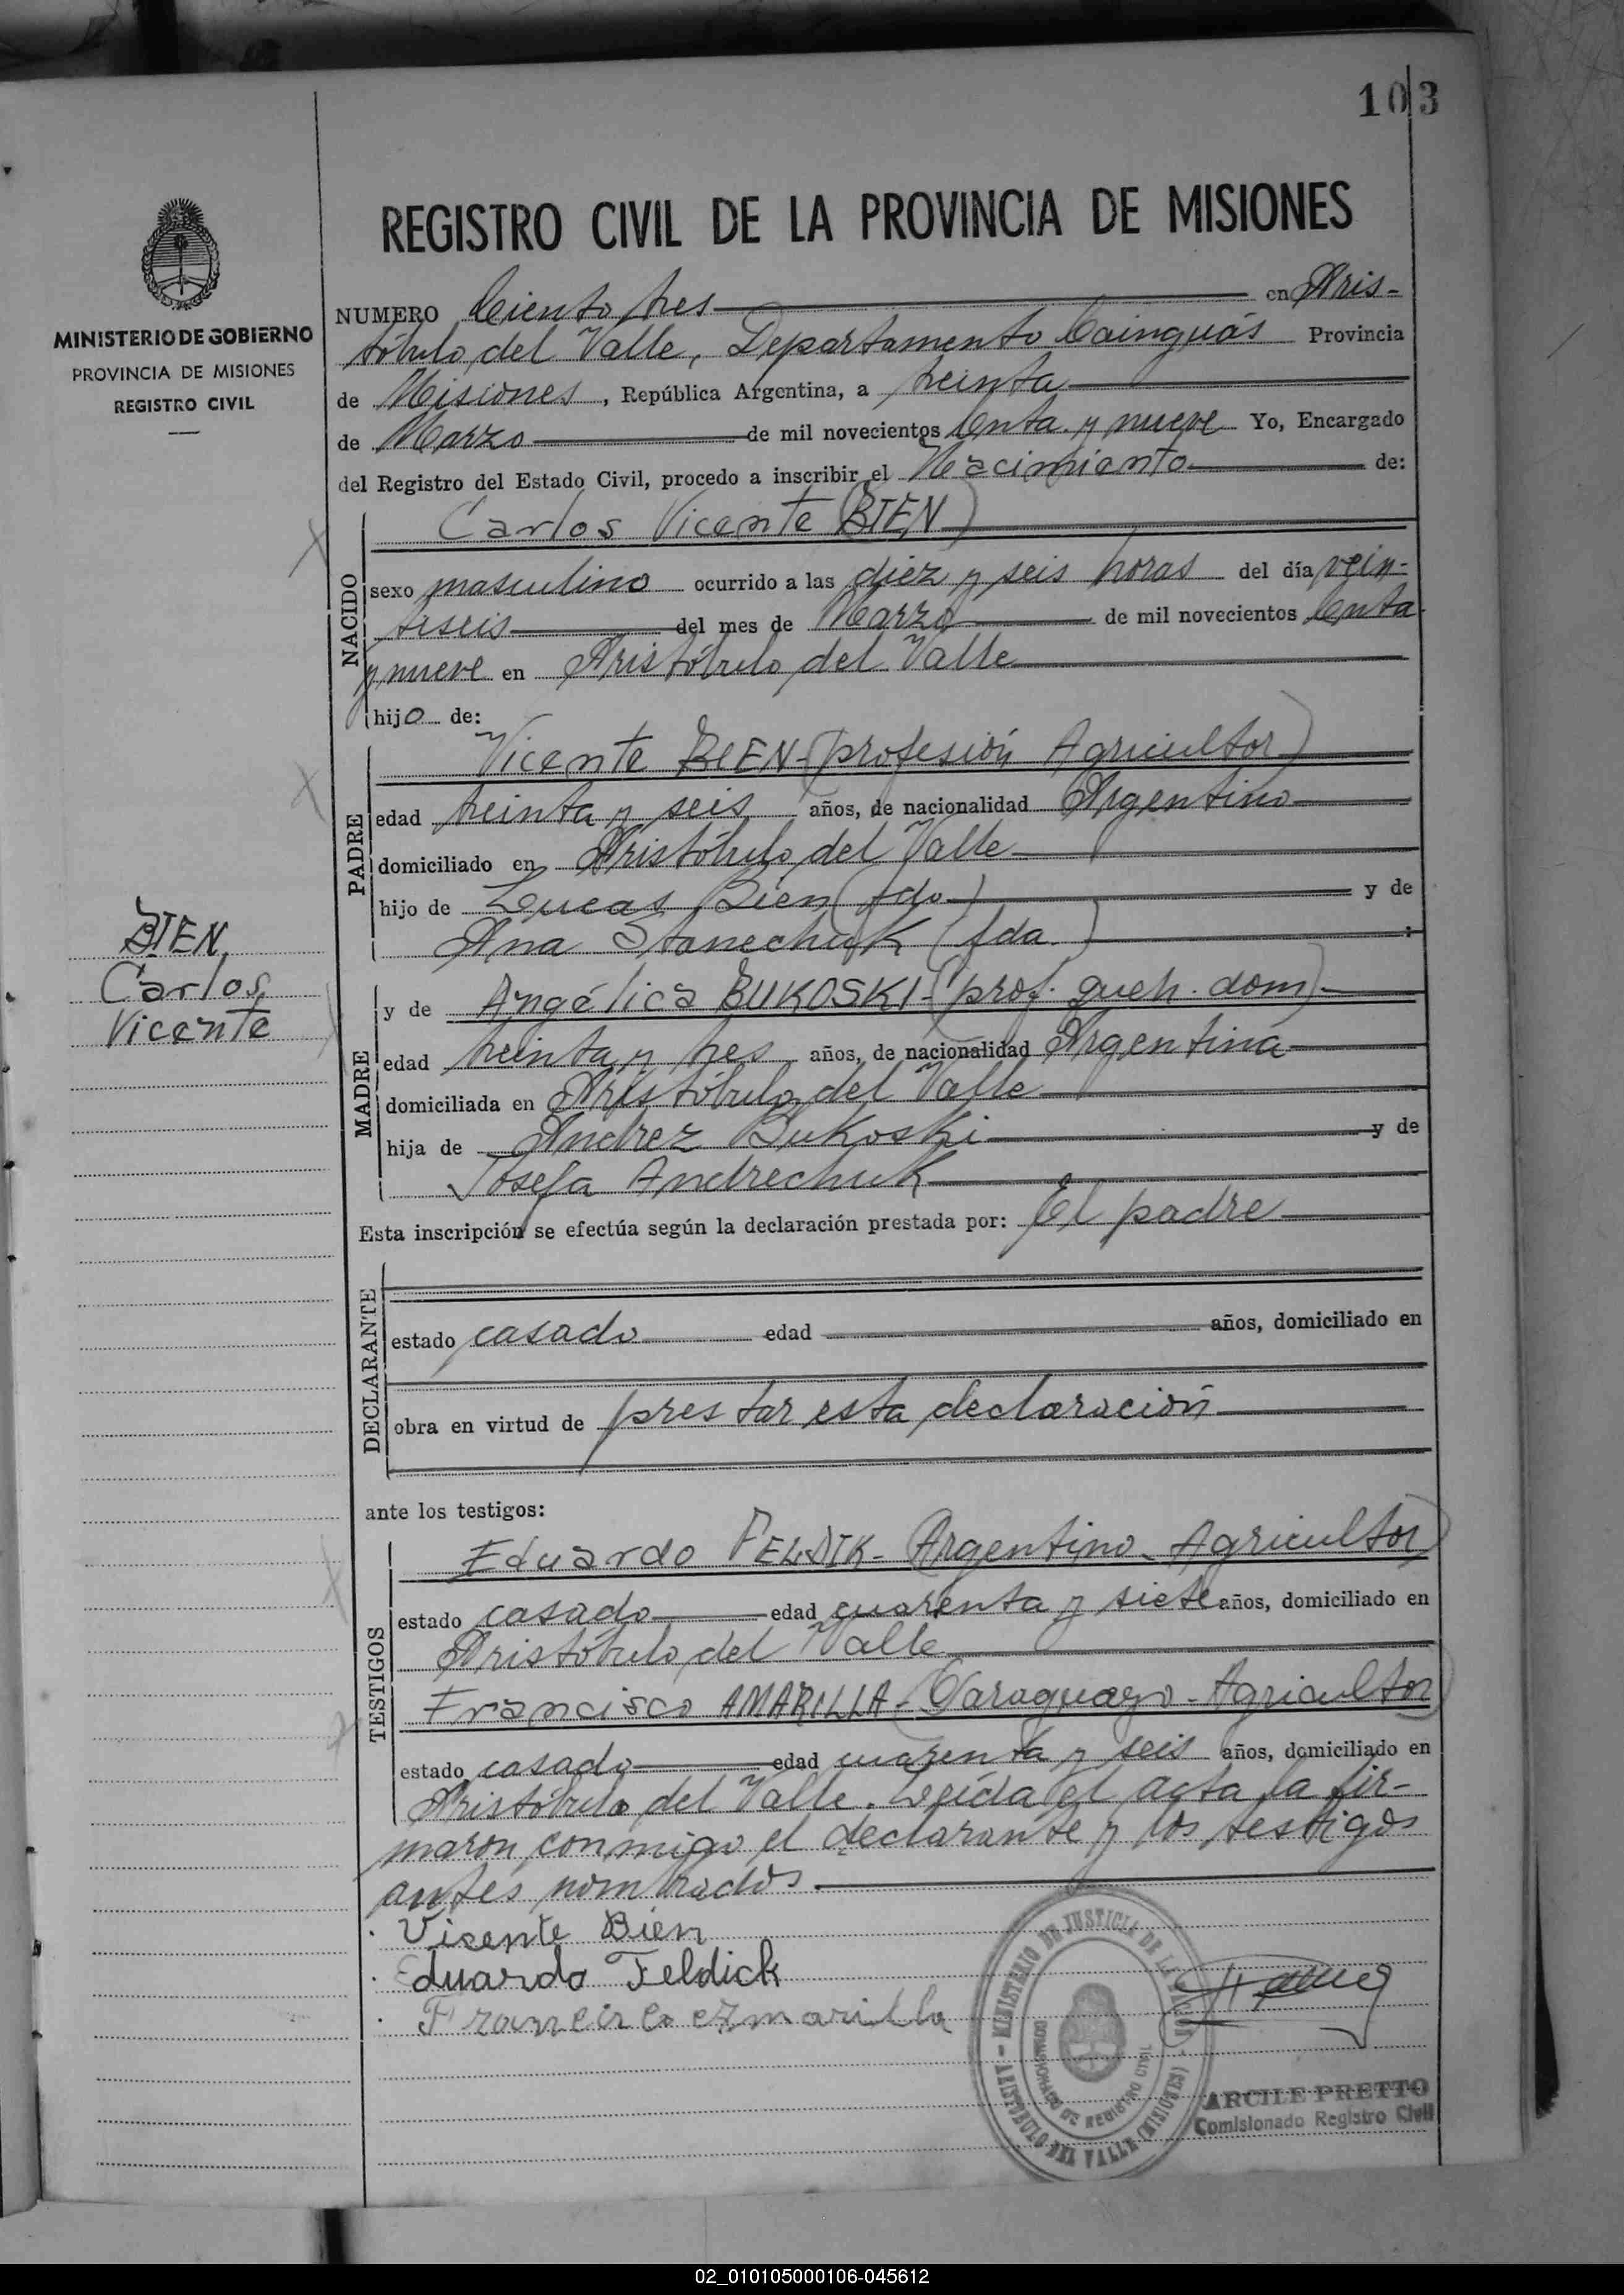 103
REGISTRO CIVIL DE LA PROVINCIA DE MISIONES
MINISTERIO DE GOBIERNO
PROVINCIA DE MISIONES
REGISTRO CIVIL
NUMERO Ciento tres en Aris-
tóbulo del Valle, Departamento Cainguás Provincia
de Misiones, República Argentina, a treinta
de Marzo de mil novecientos senta y nueve Yo, Encargado
del Registro del Estado Civil, procedo a inscribir el Nacimiento de:
Carlos Vicente (BIEN)
NACIDO
sexo masculino ocurrido a las diez y seis horas del día vein-
tiseis del mes de Marzo de mil novecientos senta
y nueve en Aristóbulo del Valle
hijo de:
Vicente BIEN-(profesión Agricultor)
PADRE
edad treinta y seis años, de nacionalidad Argentino
domiciliado en Aristóbulo del Valle
hijo de Lucas Bien (fdo) y de
Ana Stanechuk (fda.)
BIEN,
Carlos
Vicente
y de Angélica BUKOSKI-(prof. queh. dom)-
MADRE
edad treinta y tres años, de nacionalidad Argentina
domiciliada en Aristóbulo del Valle
hija de Andrez Bukoski y de
Josefa Andrechuk
Esta inscripción se efectúa según la declaración prestada por: El padre
DECLARANTE
estado casado edad años, domiciliado en
obra en virtud de prestar esta declaración
ante los testigos:
Eduardo FELDIK-(Argentino-Agricultor)
TESTIGOS
estado casado edad cuarenta y siete años, domiciliado en
Aristóbulo del Valle
Francisco AMARILLA-(Paraguayo-Agricultor)
estado casado edad cuarenta y seis años, domiciliado en
Aristóbulo del Valle. Leída el acta la fir-
maron conmigo el declarante y los testigos
antes nombrados
Vicente Bien
Eduardo Feldick
Francisco Amarilla
MINISTERIO DE JUSTICIA DE LA NACION
COMISIONADO DE REGISTRO CIVIL
ARISTOBULO DEL VALLE (MISIONES)
ARCILE PRETTO
Comisionado Registro Civil
02_010105000106-045612